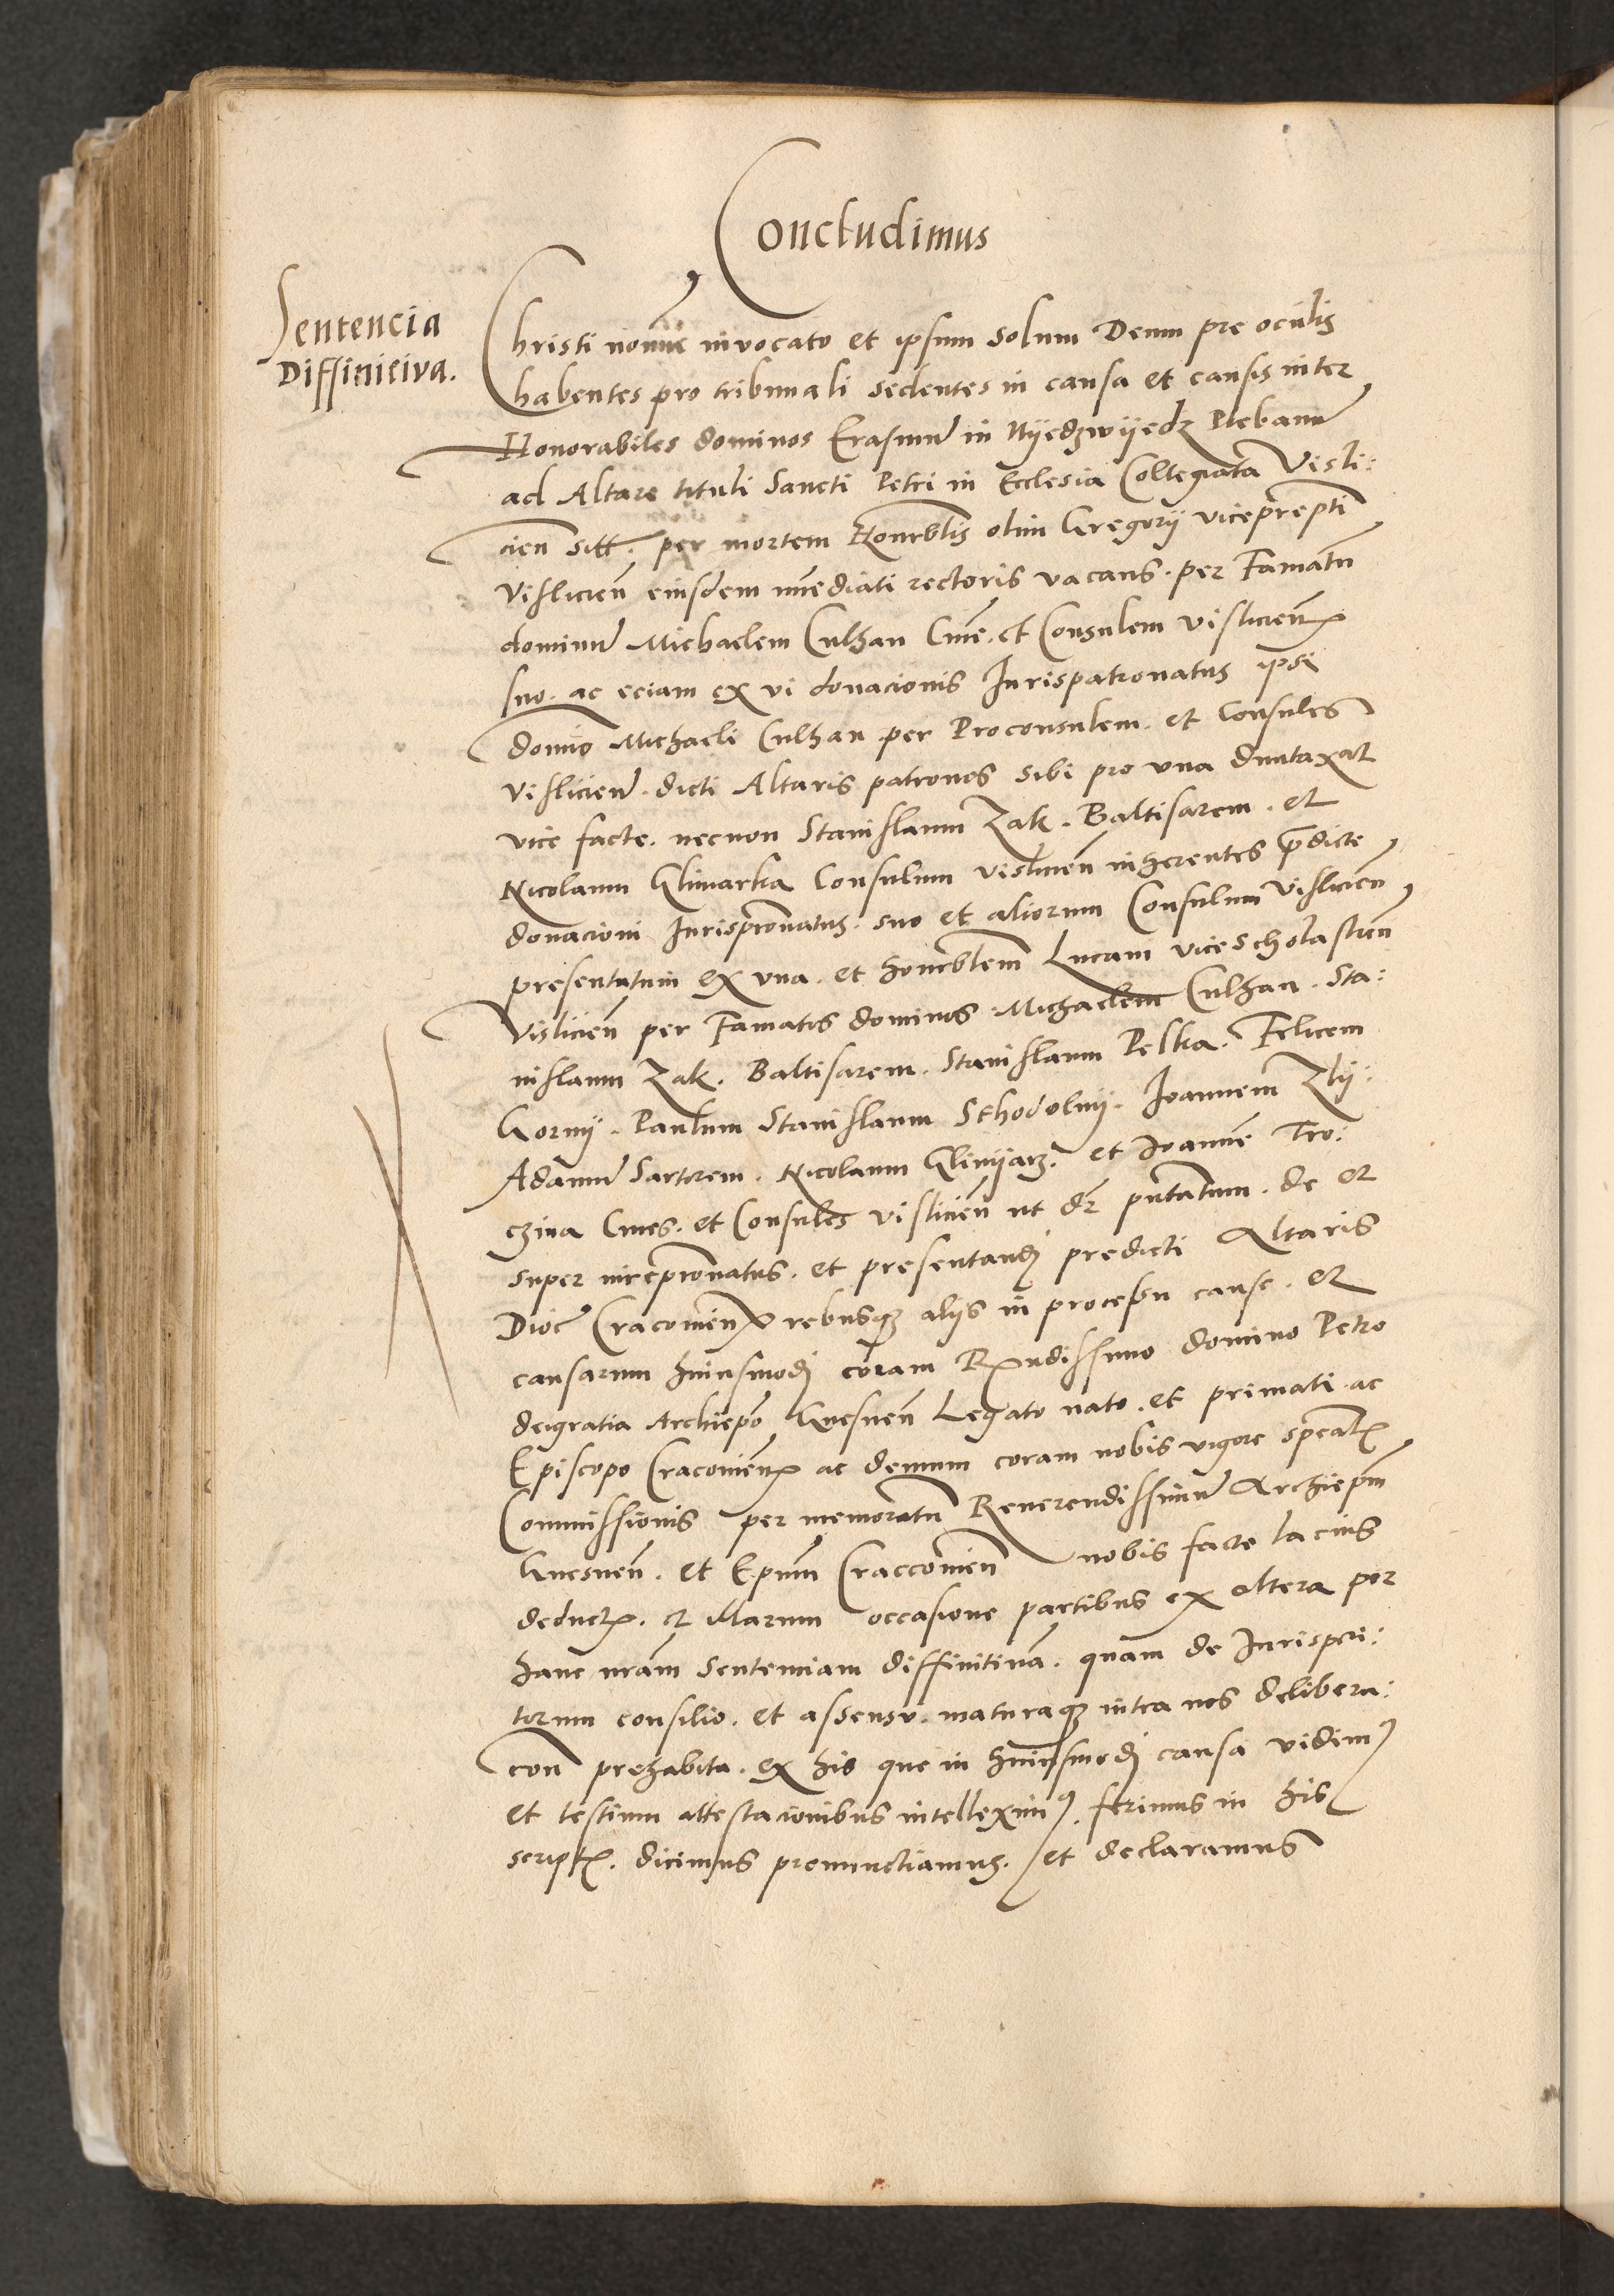 Concludimus
Sentencia
Diffinitiva.
Christi nomine invocato et ipsum solum Deum pre oculis
habentes pro tribunali sedentes in causa et causis inter
Honorabiles dominos Erasmum in Nyedzwyedz Plebanum
ad Altare tituli Sancti Petri in Ecclesia Collegiata Visli:
cien sitt. per mortem Honrblis olim Gregorij viceprepti
Vislicien eiusdem immediati rectoris vacans. per Famatum
dominum Michaelem Culhan Cive. et Consulem vislicien
suo. ac eciam ex vi donacionis Jurispatronatus ipsi
domino Michaeli Culhan per Proconsulem. et Consules
Vislicien. dicti Altaris patronos sibi pro una duntaxat
vice facte. necnon Stanislaum Zak. Baltisarem. et
Nicolaum Glimarka Consulum vislicien inherentes predicte
donacioni Jurispronatus. suo et aliorum Consulum Vislicien
presentatum ex una. et honrblem Lucam viceScholasticum
Vislicien per Famatos dominos Michaelem Culhan. Sta:
nislaum Zak. Baltisarem. Stanislaum Pelka. Felicem
Gorny. Paulum Stanislaum Sthodolny. Joannem Zly.
Adamum Sartorem. Nicolaum Glinyarz. et Joannem Tro:
czina Cives. et Consules vislicien ut dr pntatum. de et
super iurepronatus. et presentandi predicti Altaris
Dioc Cracovien rebusque alijs in processu cause. et
causarum huiusmodi coram Rndissimo domino Petro
deigratia Archiepo Gnesnen Legato nato. et primati. ac
Episcopo Cracovien ac demum coram nobis vigore specialis
Commissionis per memoratum Reverendissimum Archiepum
Gnesnen. et Epum Craccovien nobis facte lacius
deductis. et illarum occasione partibus ex altera per
hanc nram Sentenciam diffinitivam. quam de Jurisperi:
torum consilio. et assensu. maturaque intra nos delibera:
cion prehabita. ex his que in huiusmodi causa vidimus
et testium attestacionibus intelleximus. ferimus in his
scriptis. dicimus pronunctiamus. et declaramus